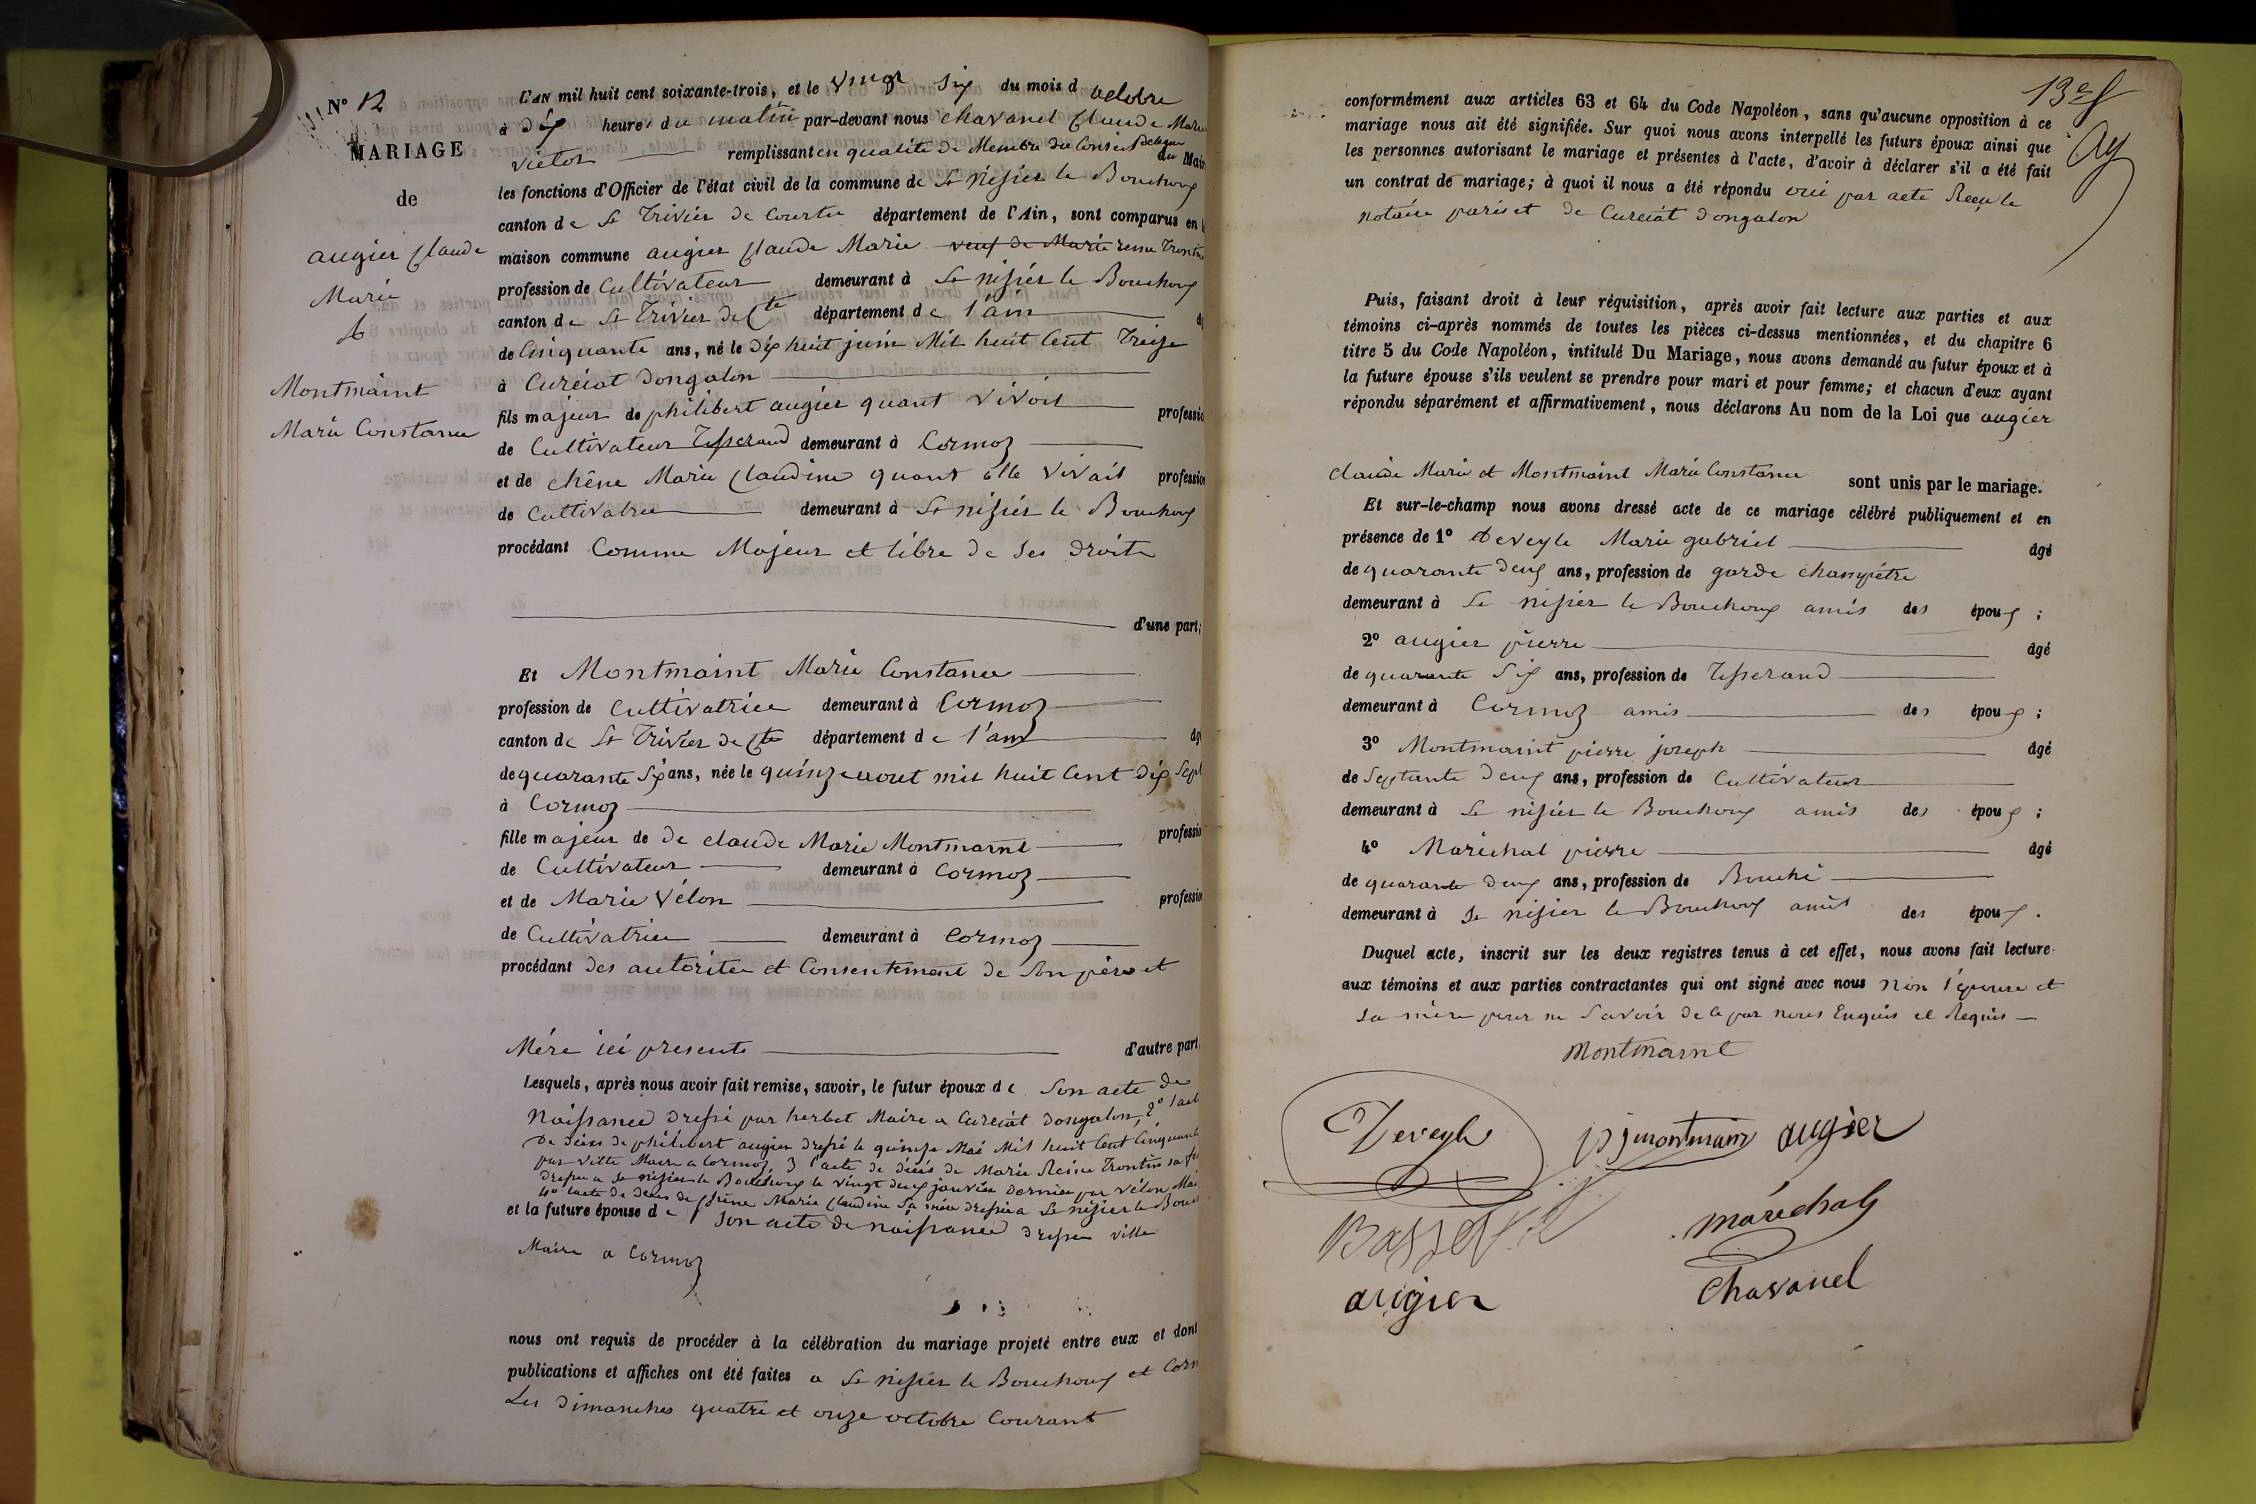 N° 12
MARIAGE
de
augier Claude
Marie
&
Montmaint
Marie Constance
L'AN mil huit cent soixante-trois, et le vingt six du mois d octobre
à dix heures du matin par-devant nous Chavanel Claude Marie
Victor remplissant en qualité de Membre du Conseil délégué du Mair
les fonctions d'Officier de l'état civil de la commune de St nisier le Bouchoux
canton de St Trivier de Courtes département de l'Ain, sont comparus en l
maison commune augier Claude Marie veuf de Marie reine Trontin
profession de Cultivateur demeurant à St nisier le Bouchoux
canton de St Trivier de Cte département de l'ain
de Cinquante ans, né le dix huit juin Mil huit Cent Treize
à Curciat dongalon
fils majeur de philibert augier quant vivoit professio
de Cultivateur Tisserand demeurant à Cormoz
et de chêne Marie Claudine quant elle vivait profession
de Cultivatrice demeurant à St nisier le Bouchoux
procédant Comme Majeur et libre de ses droits
d'une part;
Et Montmaint Marie Constance
profession de Cultivatrice demeurant à Cormoz
canton de St Trivier de Cte département de l'ain âg
de quarante six ans, née le quinze aout mil huit Cent dix Sept
à Cormoz
fille majeur de de claude Marie Montmarnt professio
de Cultivateur demeurant à Cormoz
et de Marie Vélon professio
de Cultivatrice demeurant à Cormoz
procédant des autorités et Consentement de Son père et
Mére ici presents d'autre part
Lesquels, après nous avoir fait remise, savoir, le futur époux de Son acte de
Naissance dressé par herbet Maire a Curciat dongalon, 2° l'acte
de décès de philibert augier dressé le quinze Mai Mil huit Cent Cinquante
par Ville Maire a Cormoz, 3 l'acte de décès de Marie Reine Trontin sa fe
dressé a St nisier le Bouchoux le vingt deux janvier dernier par Vélon Mai
4° l'acte de décès de Chêne Marie Claudine Sa mère dressé a St nisier le Bouch
et la future épouse de Son acte de naissance dressé ville
Maire a Cormoz
nous ont requis de procéder à la célébration du mariage projeté entre eux et dont
publications et affiches ont été faites a St nisier le Bouchoux et Corm
Les dimanches quatre et onze octobre Courant
conformément aux articles 63 et 64 du Code Napoléon, sans qu'aucune opposition à ce
mariage nous ait été signifiée. Sur quoi nous avons interpellé les futurs époux ainsi que
les personnes autorisant le mariage et présentes à l'acte, d'avoir à déclarer s'il a été fait
un contrat de mariage; à quoi il nous a été répondu oui par acte Reçu le
notaire pariset de Curciat dongalon
Puis, faisant droit à leur réquisition, après avoir fait lecture aux parties et aux
témoins ci-après nommés de toutes les pièces ci-dessus mentionnées, et du chapitre 6
titre 5 du Code Napoléon, intitulé Du Mariage, nous avons demandé au futur époux et à
la future épouse s'ils veulent se prendre pour mari et pour femme; et chacun d'eux ayant
répondu séparément et affirmativement, nous déclarons Au nom de la Loi que augier
Claude Marie et Montmaint Marie Constance sont unis par le mariage.
Et sur-le-champ nous avons dressé acte de ce mariage célébré publiquement et en
présence de 1° deveyle Marie gabriel âgé
de quarante deux ans, profession de garde champétre
demeurant à St nisier le Bouchoux amis des époux ;
2° augier pierre âgé
de quarante six ans, profession de Tisserand
demeurant à Cormoz amis des époux ;
3° Montmaint pierre joseph âgé
de Septante deux ans, profession de Cultivateur
demeurant à St nisier le Bouchoux amis des époux ;
4° Maréchal pierre âgé
de quarante deux ans, profession de Bouché
demeurant à St nisier le Bouchoux amis des époux .
Duquel acte, inscrit sur les deux registres tenus à cet effet, nous avons fait lecture
aux témoins et aux parties contractantes qui ont signé avec nous non l'épouse et
sa mère pour ne Savoir de ce par nous Enquis et Requis
Montmarnt
Deveyle
pj montmain augier
maréchal
augier
Chavanel